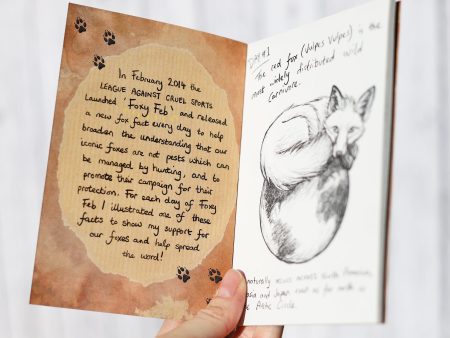 In February 2014 the
LEAGUE AGAINST CRUEL SPORTS
launched 'Foxy Feb' and released
a new fox fact every day to help
broaden the understanding that our
iconic foxes are not pests which can
be managed by hunting, and to
promote their campaign for their
protection. For each day of Foxy
Feb I illustrated one of these
facts to show my support for
our foxes and help spread
the word!
DAY #1
The red fox (Vulpes Vulpes) is the
most widely distributed wild
Carnivore.
naturally across North America,
and Japan even as far north as
the Arctic Circle.